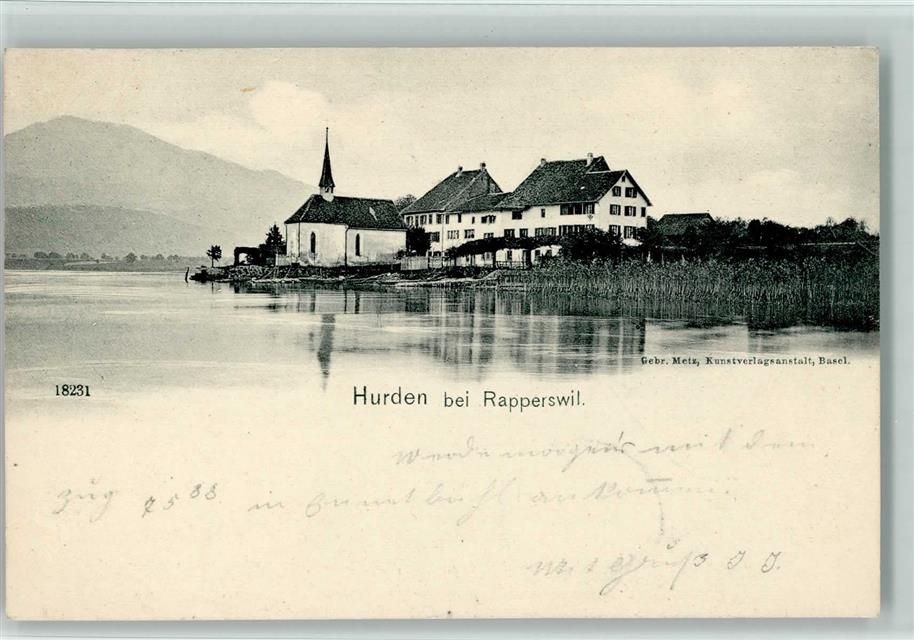 Gebr. Metz, Kunstverlagsanstalt, Basel.
18231
Hurden bei Rapperswil.
Werde morgen mit dem
Zug 7 5 38 in Ennetbühl ankommen.
Mit Gruß J. J.